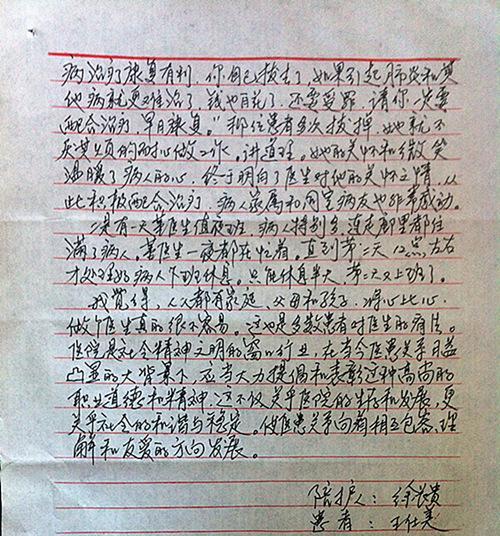 病治疗康复有利，你自己拔去了，如果引起肺炎和其
他病就更难治了，钱也白花了，还需受罪，请你一定要
配合治疗，早日康复。"那位患者多次拔掉，她就不
厌其烦的耐心做工作。讲道理。她的关怀和微笑
温暖了病人的心，终于明白了医生对他的关怀之情，从
此积极配合治疗，病人家属和同室病友也非常感动。
还有一天董医生值夜班，病人特别多，连走廊里都住
满了病人。董医生一夜都在忙着。直到第二天12点左右
才处理好病人下班休息。只能休息半天，第二天又上班了。
我觉得，人人都有家庭、父母和孩子，将心比心，
做个医生真的很不容易。这也是多数患者对医生的看法。
医院是社会精神文明的窗口行业，在当今医患关系日益
凸显的大背景下，应当大力提倡和表彰这种高尚的
职业道德和精神，这不仅关乎医院的生存和发展，更
关乎社会的和谐与稳定。使医患关系向着相互包容、理
解和友爱的方向发展。
陪护人：徐贵
患者：王仕美